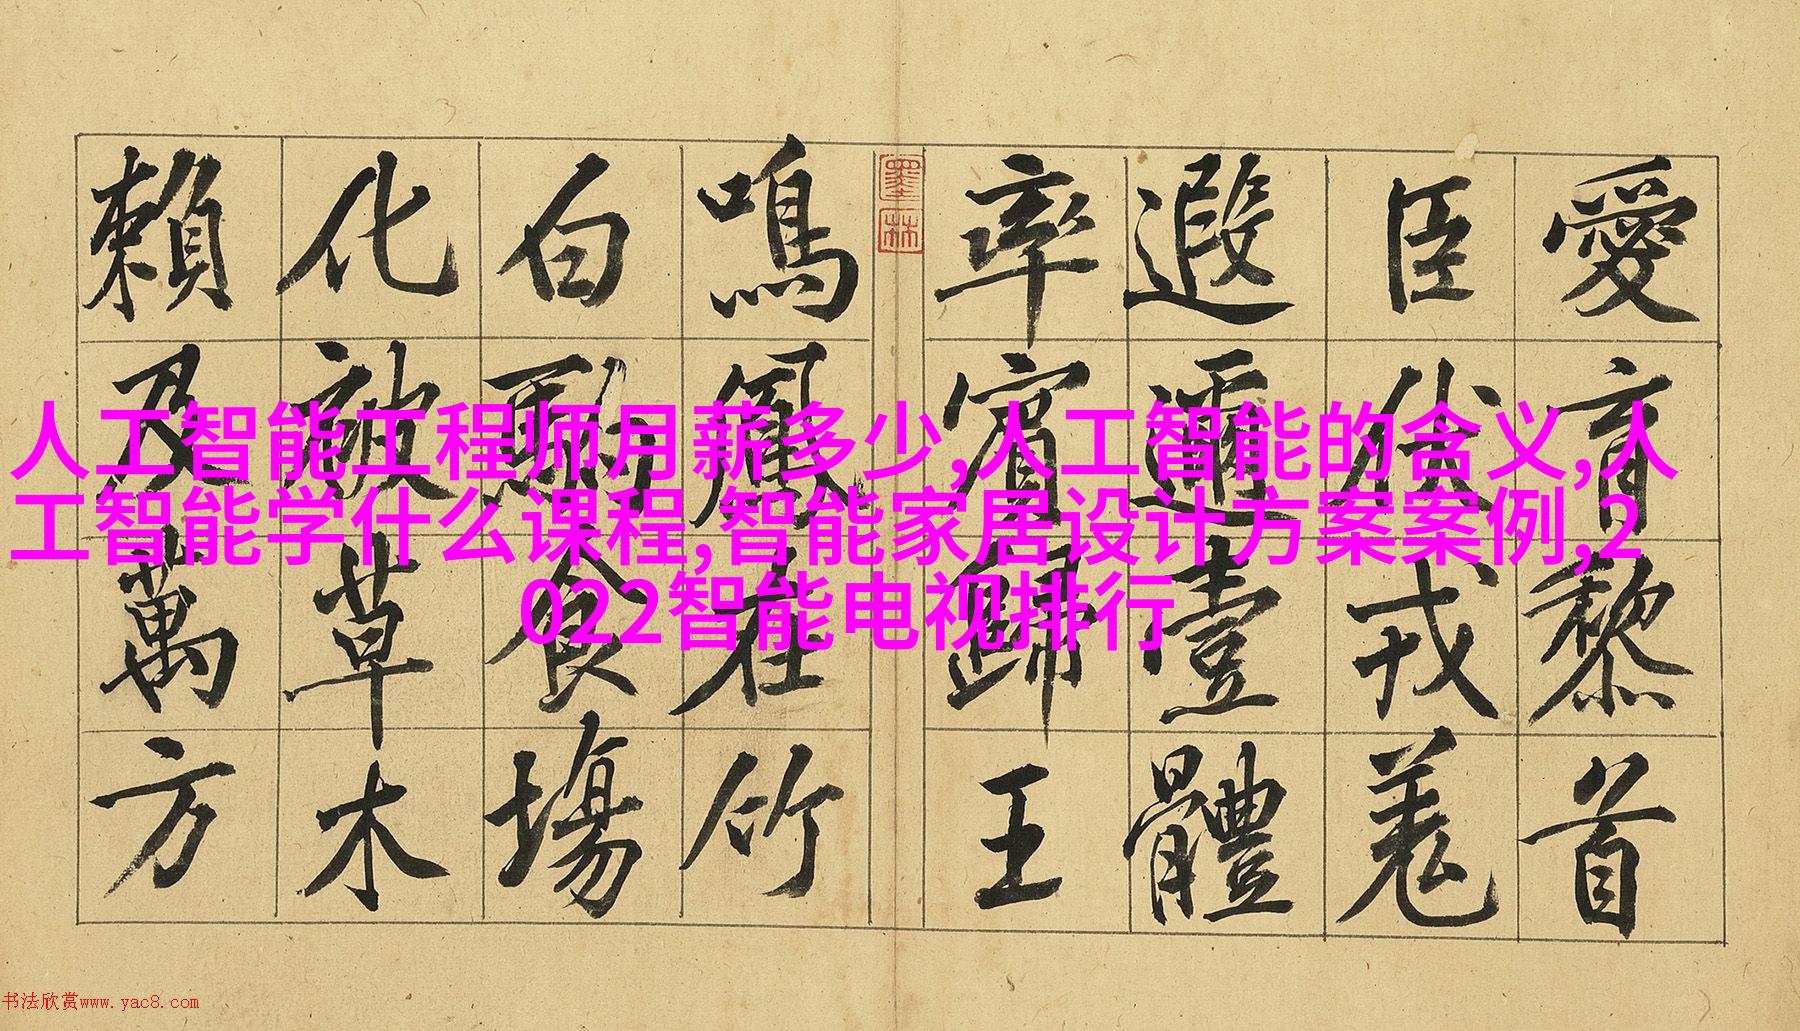 愛育黎首
臣伏戎羌
遐邇壹體
率賓歸王
墨林
鳴鳳在竹
白駒食場
化被草木
賴及萬方
人工智能工程师月薪多少,人工智能的含义,人
工智能学什么课程,智能家居设计方案案例,2
022智能电视排行
书法欣赏www.yac8.com